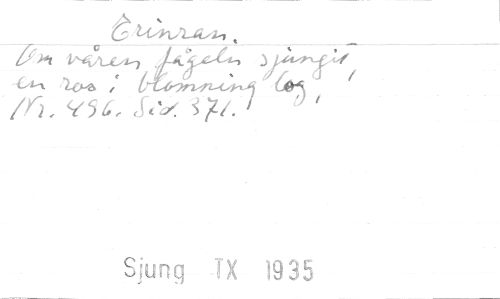 Erinran.
Om våren fågeln sjungit,
en ros i blomning log,
Nr. 496. Sid. 371.
Sjung TX 1935